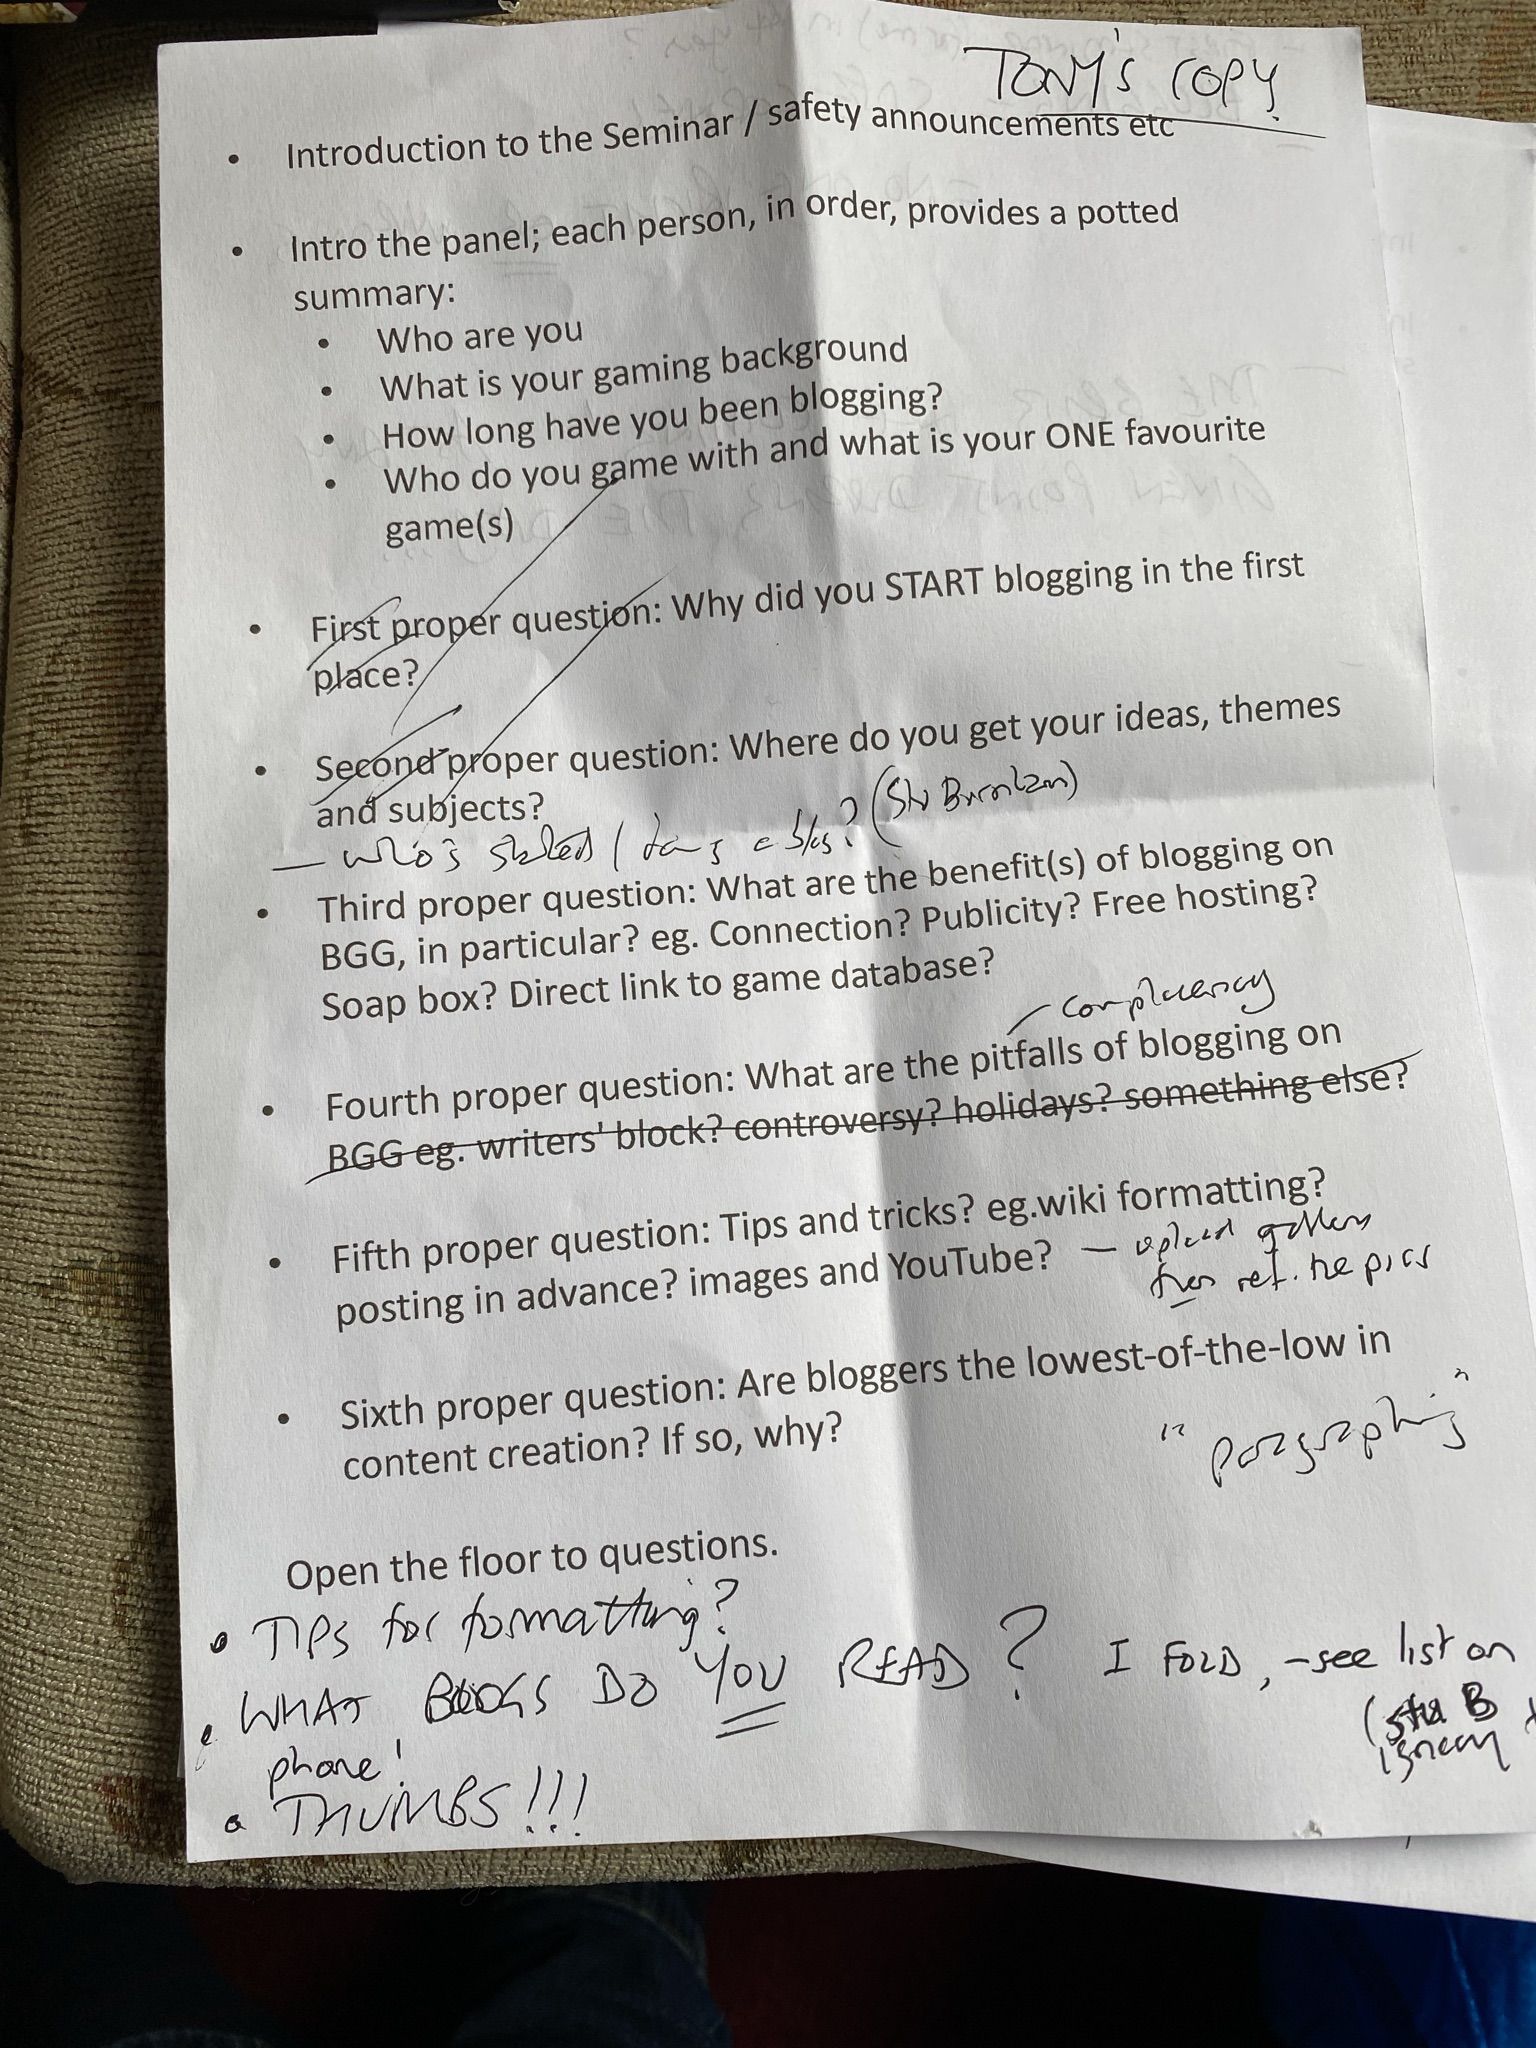 TONY'S COPY
• Introduction to the Seminar / safety announcements etc
• Intro the panel; each person, in order, provides a potted
summary:
• Who are you
• What is your gaming background
• How long have you been blogging?
• Who do you game with and what is your ONE favourite
game(s)
• First proper question: Why did you START blogging in the first
place?
• Second proper question: Where do you get your ideas, themes
and subjects?
— who's started / ? (Stu Burnham)
• Third proper question: What are the benefit(s) of blogging on
BGG, in particular? eg. Connection? Publicity? Free hosting?
Soap box? Direct link to game database?
— complacency
• Fourth proper question: What are the pitfalls of blogging on
BGG eg. writers' block? controversy? holidays? something else?
• Fifth proper question: Tips and tricks? eg.wiki formatting?
posting in advance? images and YouTube? — upload gallery
then ref. the pics
• Sixth proper question: Are bloggers the lowest-of-the-low in
content creation? If so, why?
"paragraphing"
Open the floor to questions.
• TIPS for formatting?
• WHAT BLOGS DO YOU READ? I FOLD, -see list on
phone!
(Stu B
• THUMBS!!!